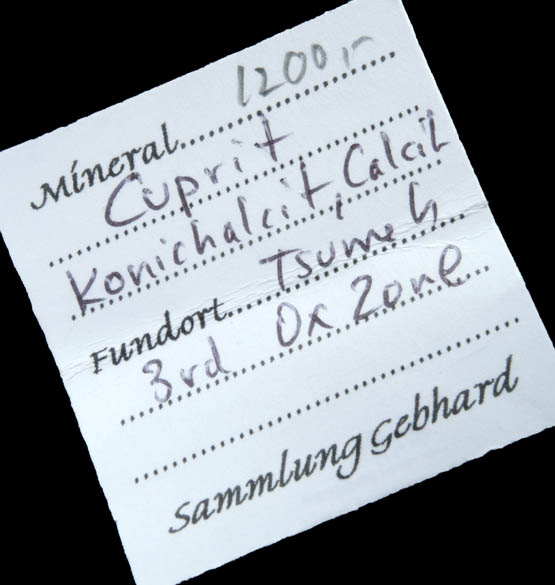 1200,-
Mineral
Cuprit
Konichalcit, Calcit
Fundort Tsumeb
3rd Ox Zone
Sammlung Gebhard